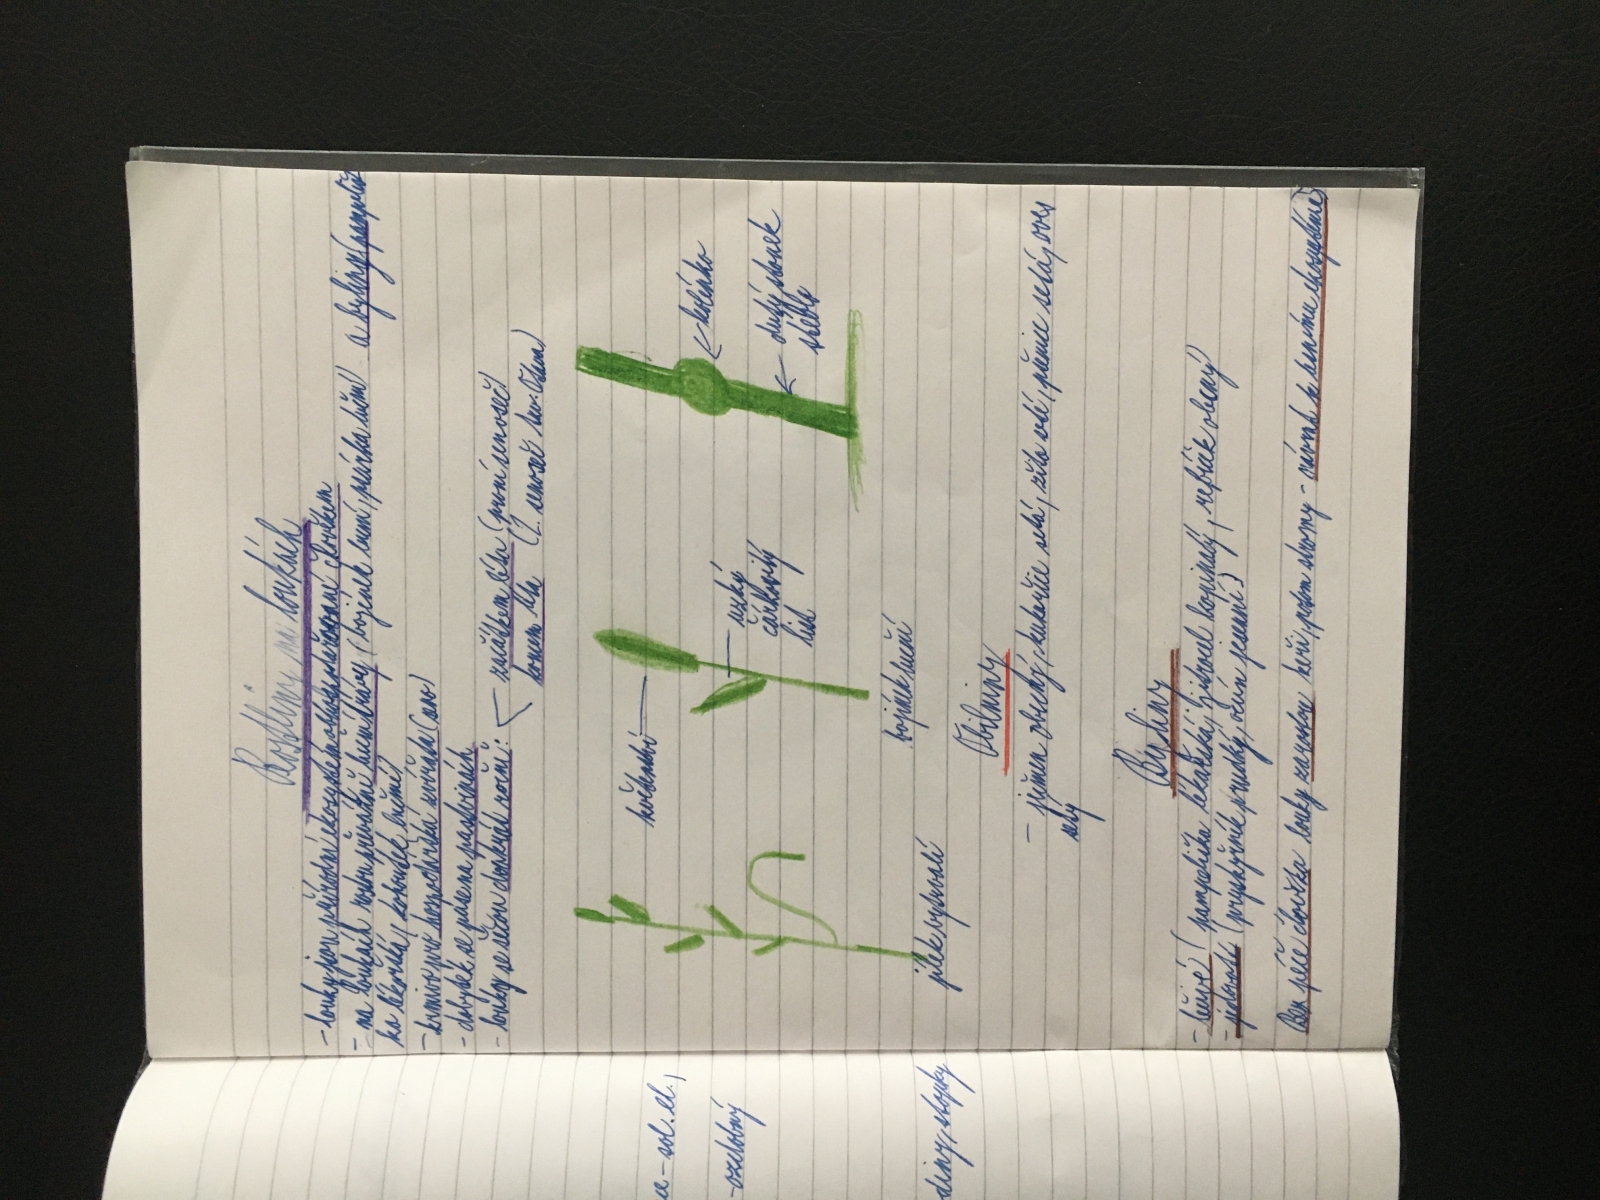 Rostliny na loukách
- louky jsou přírodní ekosystém obhospodařované člověkem
- na loukách rostou převážně luční trávy (bojínek luční, psárka luční) a byliny (pampeliš
ka lékařská, kohoutek luční)
- krmivo pro hospodářská zvířata (seno)
- dobytek se pase na pastvinách
- louky se sečou dvakrát ročně: začátkem léta (první senoseč)
koncem léta (2. senoseč tzv. Otava)
květenství
úzký
čárkovitý
list
kolénko
dutý stonek
stéblo
jílek vytrvalý
bojínek luční
Obilniny
- ječmen obecný, kukuřice setá, žito seté, pšenice setá, oves
setý
Byliny
- léčivé (pampeliška lékařská, jitrocel kopinatý, řebříček obecný)
- jedovaté (pryskyřník prudký, ocún jesenní)
Bez péče člověka louky zarostou keři, potom stromy - návrat k lesnímu ekosystému
a-sol.el.,
-ozdobný
diny, stopky